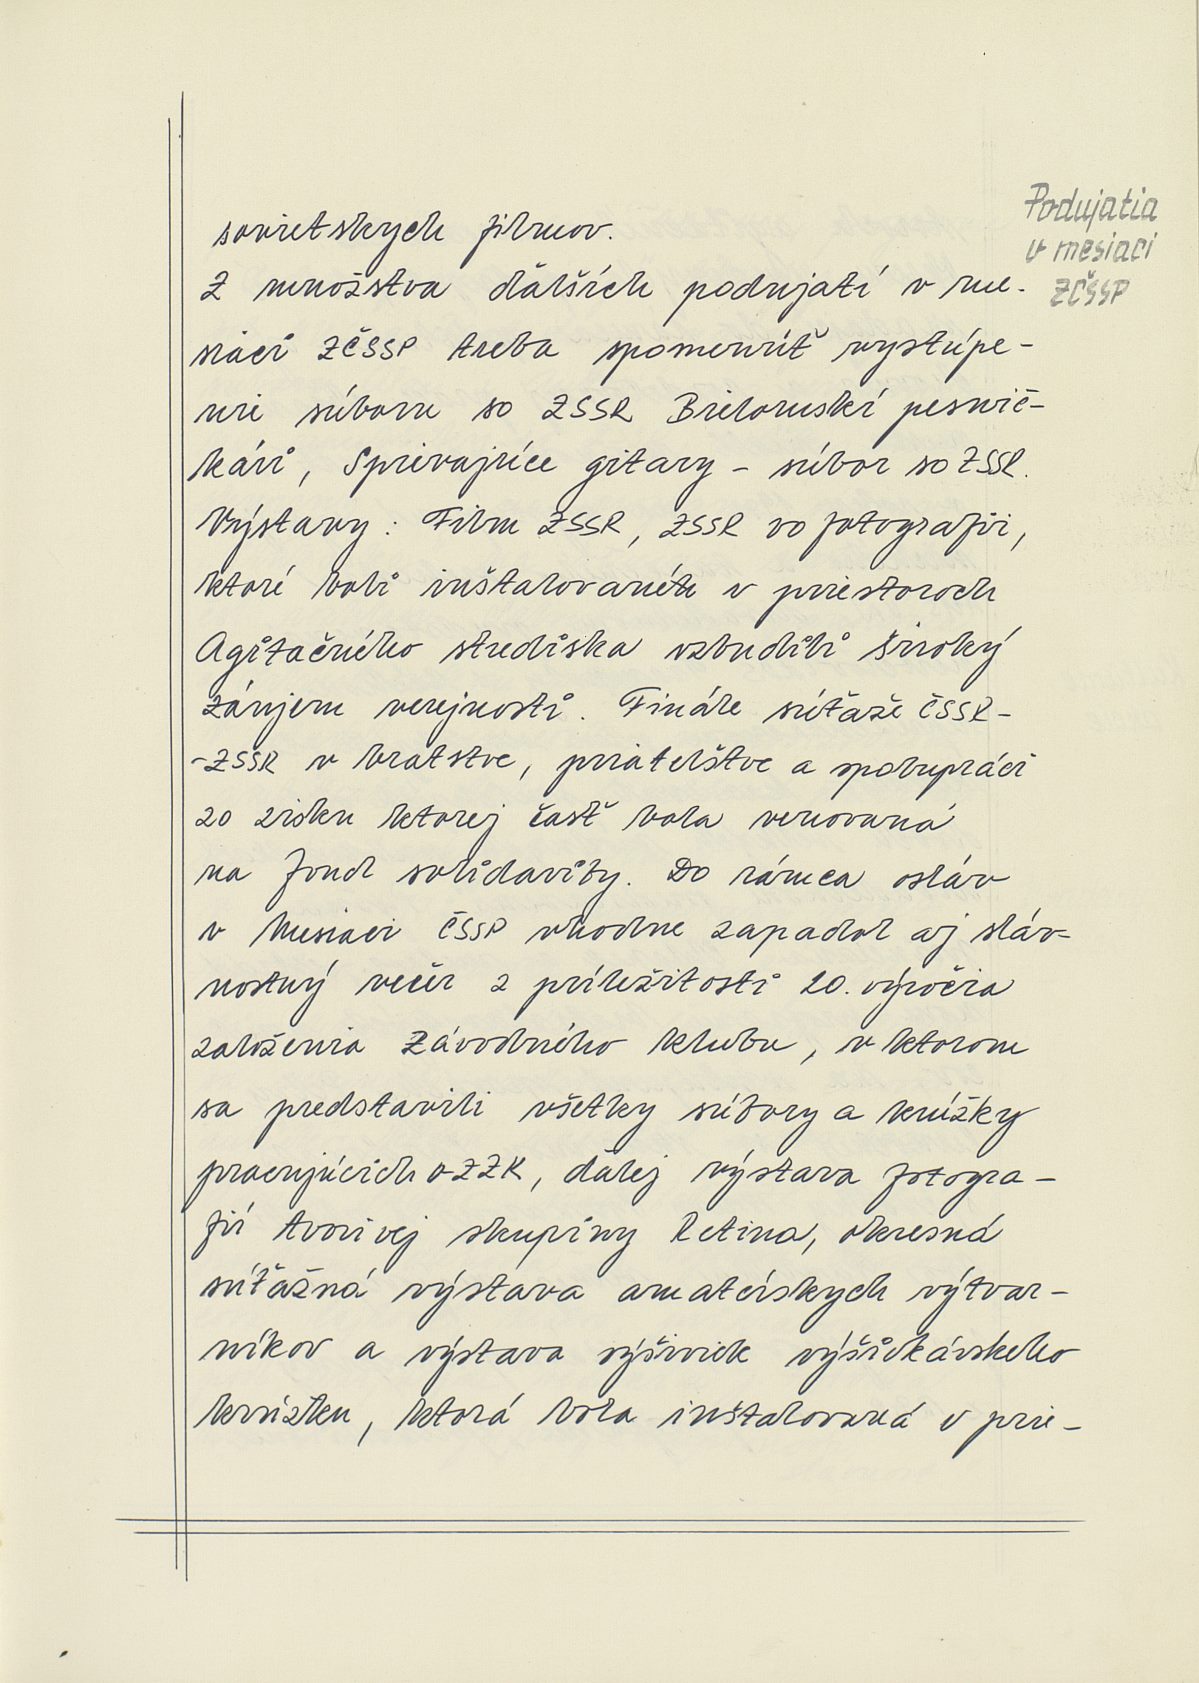 sovietskych filmov.
Podujatia
v mesiaci
ZČSSP
Z množstva ďalších podujatí v me-
siaci ZČSSP treba spomenúť vystúpe-
nie súboru so ZSSR Bieloruskí pesnič-
kári, Spievajúce gitary – súbor so ZSSR.
Výstavy: Film ZSSR, ZSSR vo fotografii,
ktoré boli inštalované v priestoroch
Agitačného strediska vzbudili široký
záujem verejnosti. Finále súťaže ČSSR-
-ZSSR v bratstve, priatelstve a spolupráci
zo zisku ktorej časť bola venovaná
na fond solidarity. Do rámca osláv
v Mesiaci ČSSP vhodne zapadol aj sláv-
nostný večer z príležitosti 20. výročia
založenia Závodného klubu, v ktorom
sa predstavili všetky súbory a krúžky
pracujúcich o ZZK, ďalej výstava fotogra-
fií tvorivej skupiny Retina, okresná
súťažná výstava amatérskych výtvar-
níkov a výstava výšiviek výšivkárskeho
krúžku, ktorá bola inštalovaná v prie-